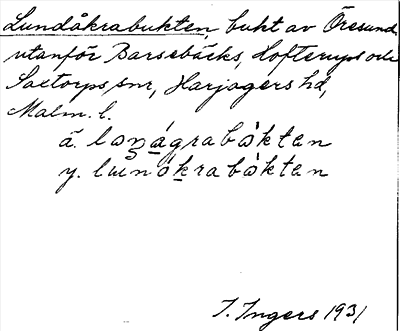 Lundåkrabukten, bukt av Öresund
utanför Barsebäcks, Hofterups och
Saxtorps snr, Harjagers hd,
Malm. l.
ä. loŋágrabòktən
y. lɯnókrabòktən
I. Ingers 1931